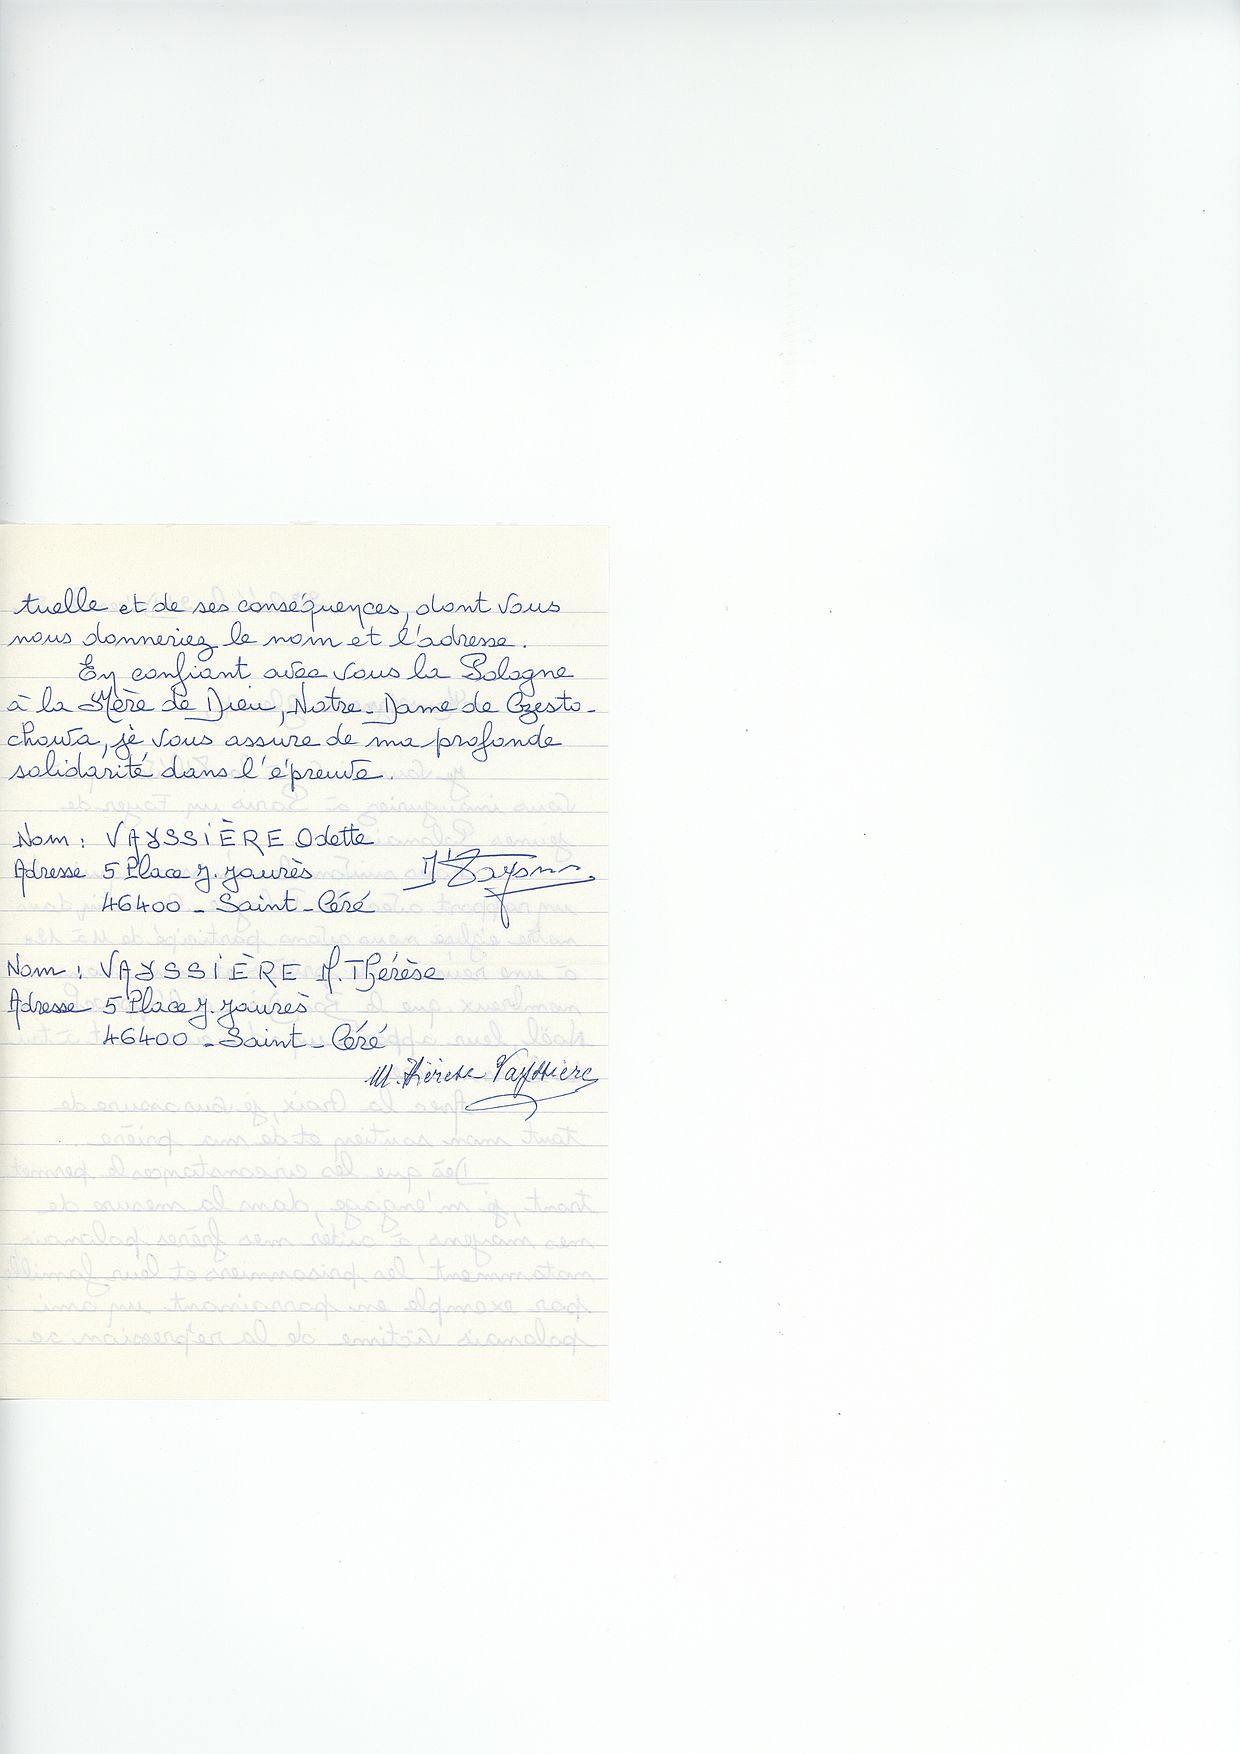 tuelle et de ses conséquences, dont vous
nous donneriez le nom et l'adresse.
En confiant avec vous la Pologne
à la Mère de Dieu, Notre-Dame de Czesto-
chowa, je vous assure de ma profonde
solidarité dans l'épreuve.
Nom : VAYSSIÈRE Odette
Adresse 5 Place J. Jaurès
46400 - Saint-Céré
Nom : VAYSSIÈRE M. Thérèse
Adresse 5 Place J. Jaurès
46400 - Saint-Céré
M. Thérèse Vayssière